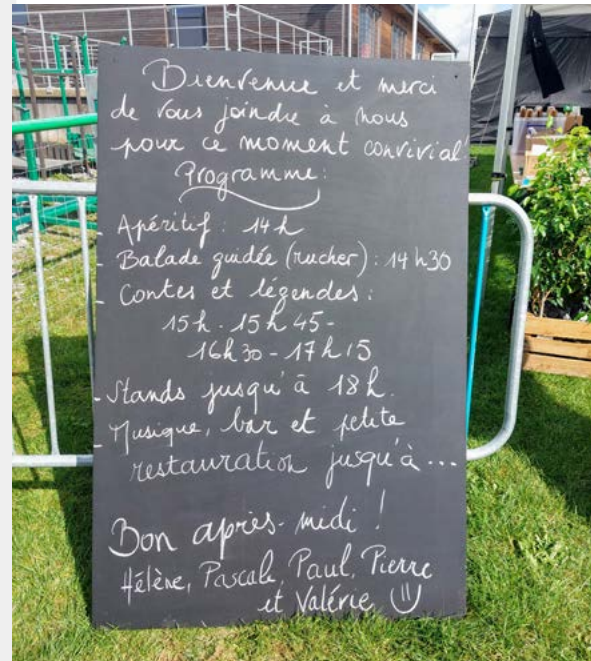 Bienvenue et merci
de vous joindre à nous
pour ce moment convivial!
Programme:
- Apéritif: 14h
- Balade guidée (rucher): 14h30
- Contes et légendes:
15h. 15h45-
16h30-17h15
- Stands jusqu'à 18h.
- Musique, bar et petite
restauration jusqu'à...
Bon après-midi!
Hélène, Pascale, Paul, Pierre
et Valérie